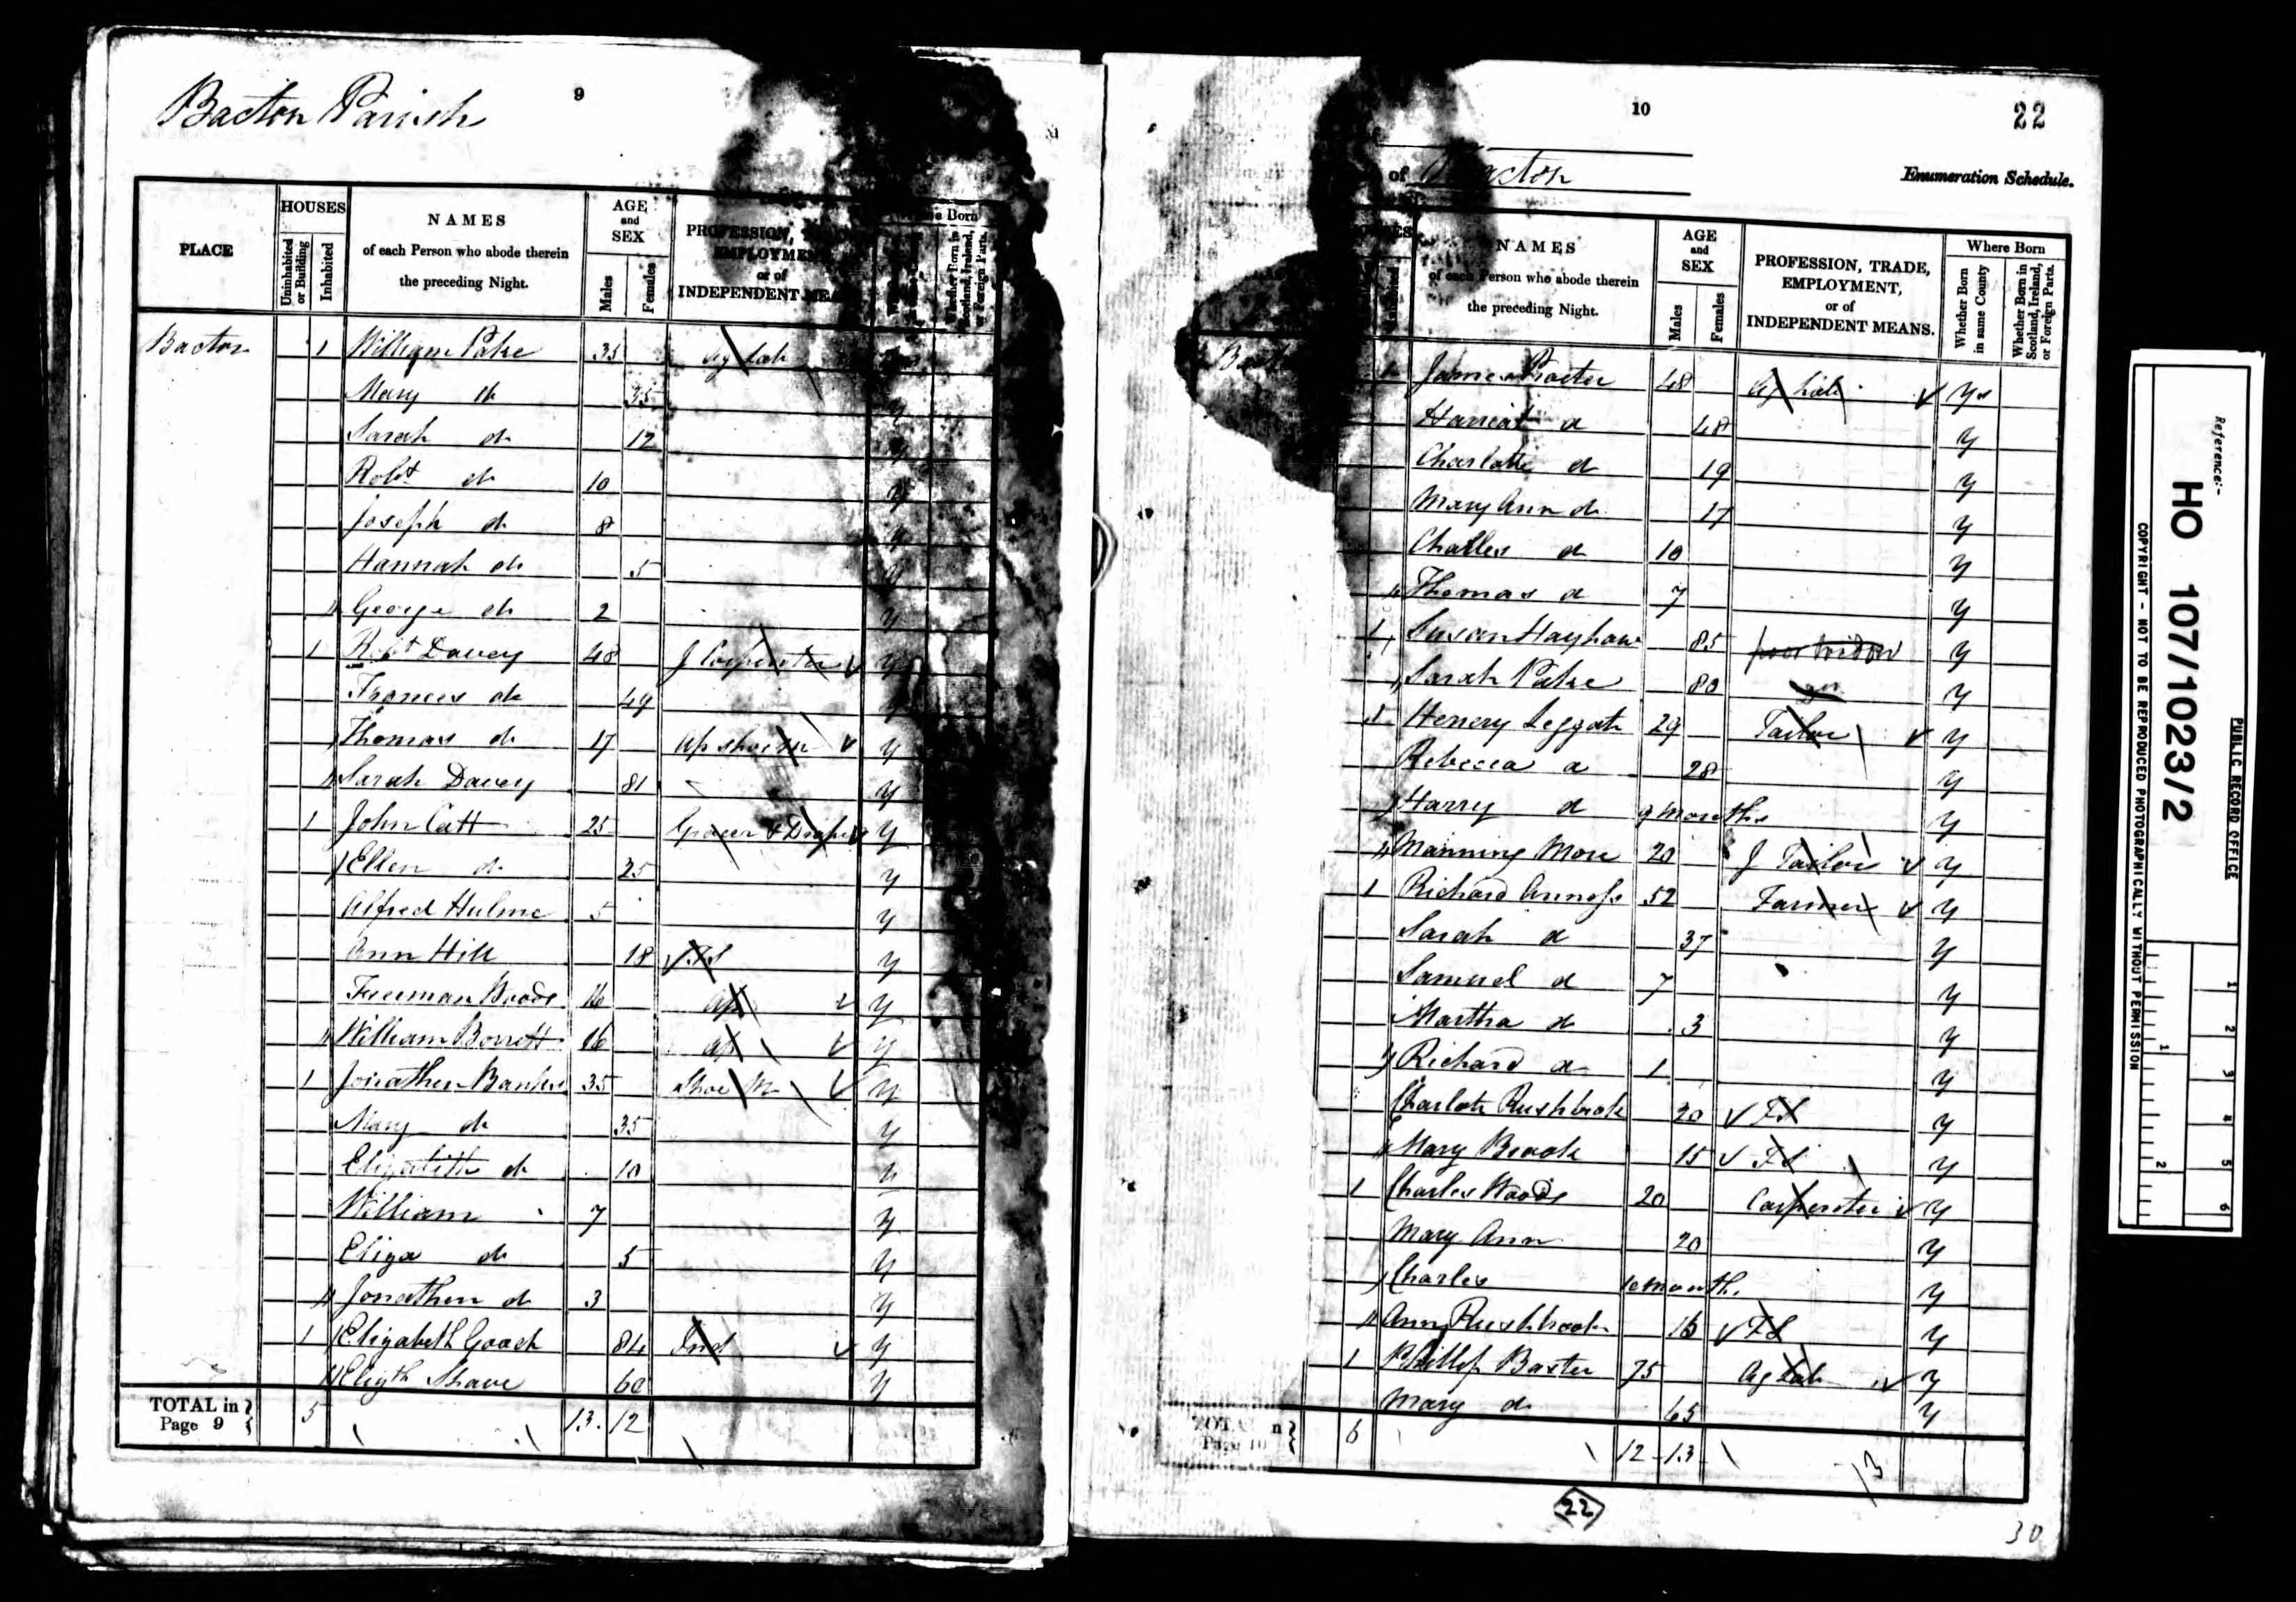 Bacton Parish
9
PLACE
HOUSES
Uninhabited or Building
Inhabited
NAMES
of each Person who abode therein
the preceding Night.
AGE
and
SEX
Males
Females
PROFESSION,
EMPLOYMENT
or of
INDEPENDENT
Born
Bacton 1 William Pake 35 Ag Lab
Mary do 35 y
Sarah do 12 y
Robt do 10 y
Joseph do 8 y
Hannah do 5 y
George do 2 y
1 Robt Davey 48 J Carpenter y
Frances do 49 y
Thomas do 17 Ap shoem y
Sarah Davey 81 y
1 John Catt 25 Grocer & Draper y
Ellen do 25 y
Alfred Hulme 5 y
Ann Hill 18 F.S y
Freeman Woods 16 Ap y
William Borrett 16 Ap y
1 Jonathen Banks 35 Shoe M y
Mary do 35 y
Elizabeth do 10 y
William 7 y
Eliza do 5 y
Jonathen do 3 y
1 Elizabeth Gooch 84 Ind y
Elizth Shave 60 y
TOTAL in
Page 9
5 13. 12
10
22
of Bacton
Enumeration Schedule.
NAMES
of each Person who abode therein
the preceding Night.
AGE
and
SEX
Males
Females
PROFESSION, TRADE,
EMPLOYMENT,
or of
INDEPENDENT MEANS.
Where Born
Whether Born in same County
Whether Born in Scotland, Ireland, or Foreign Parts.
James 48 Ag Lab ys
Harriat d 48 y
Charlotte d 19 y
Mary Ann do 17 y
Charles d 10 y
Thomas d 7 y
1 Susan Hayhow 85 poor widow y
Sarah Pake 80 do y
1 Henery Leggate 29 Tailor y
Rebecca d 28 y
Harry d 9 months y
Manning More 20 J Tailor y
1 Richard Anness 52 Farmer y
Sarah d 37 y
Samuel d 7 y
Martha d 3 y
Richard d 1 y
Charlote Rushbrook 20 FS y
Mary 15 FS y
1 Charles Woods 20 Carpenter y
Mary Ann 20 y
Charles 10 month. y
Ann Rushbrook 16 FS y
1 Phillip Baxter 75 Ag Lab y
Mary d 65 y
Page 10
6 12-13
13
22
30
Reference:-
PUBLIC RECORD OFFICE
HO 107/1023/2
COPYRIGHT - NOT TO BE REPRODUCED PHOTOGRAPHICALLY WITHOUT PERMISSION
1 2 3 4 5 6
1 2